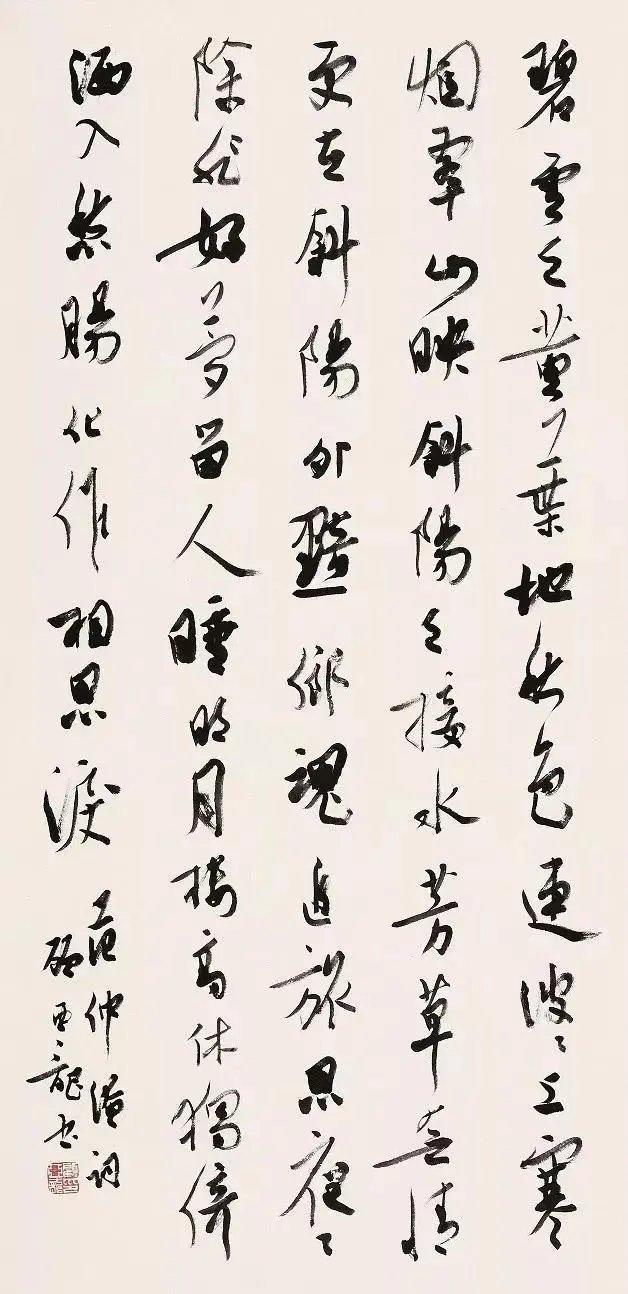 碧雲天黄葉地秋色連波〻上寒
烟翠山映斜陽天接水芳草無情
更在斜陽外黯鄉魂追旅思夜〻
除非好夢留人睡明月樓高休獨倚
酒入愁腸化作相思淚 范仲淹詞
顧亞龍书